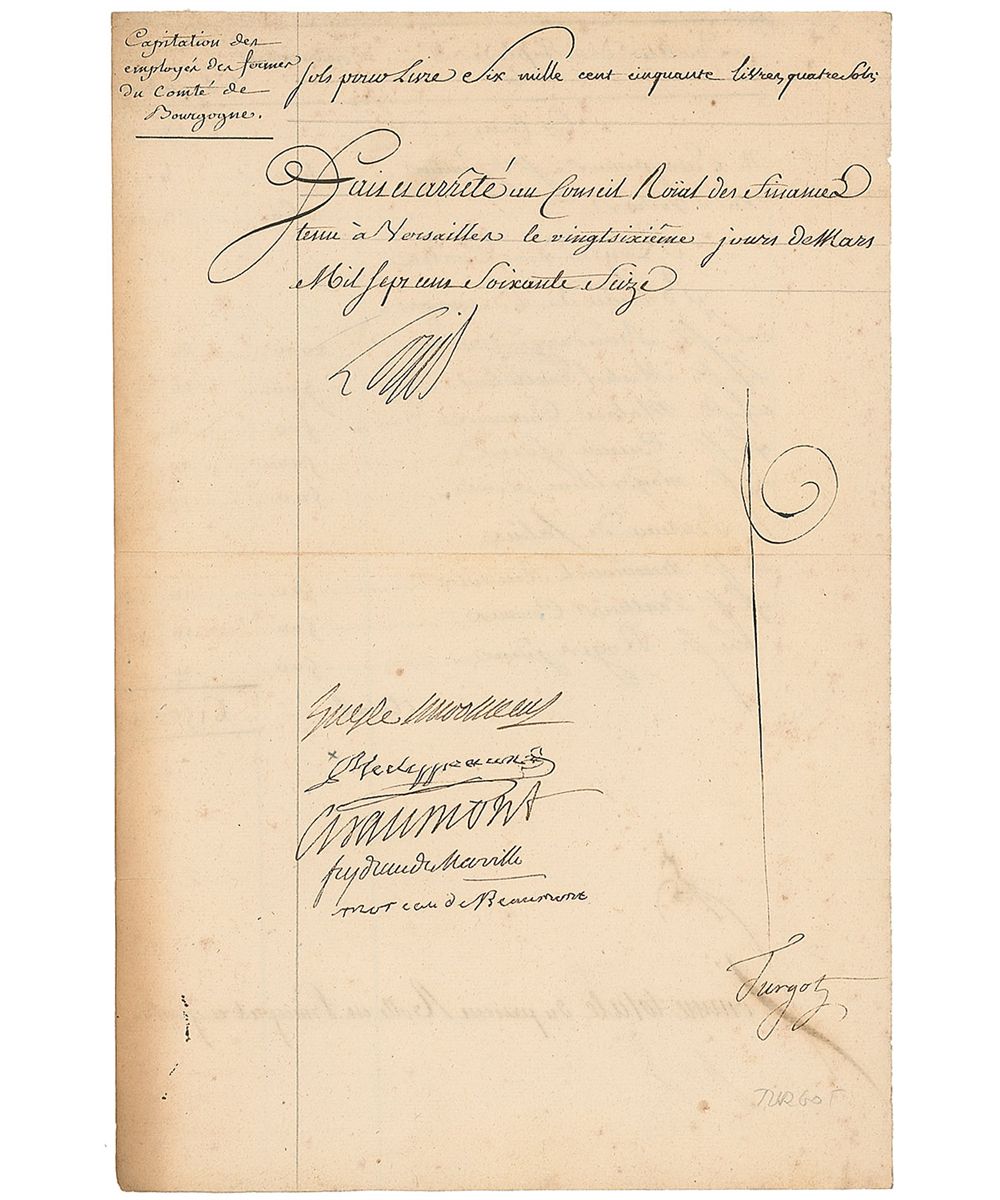 Capitation des
employés des fermes
du Comté de
Bourgogne.
sols pour Livre Six mille cent cinquante livres quatre Sols
Fait et arrêté au Conseil Roïal des Finances
tenu à Versailles le vingtsixième jours de Mars
Mil Sept cens Soixante Seize
Louis
Hue de Miromenil
Phelypeaux
Chaumont
feydeau de Marville
moreau de Beaumont
Turgot
TURGOT